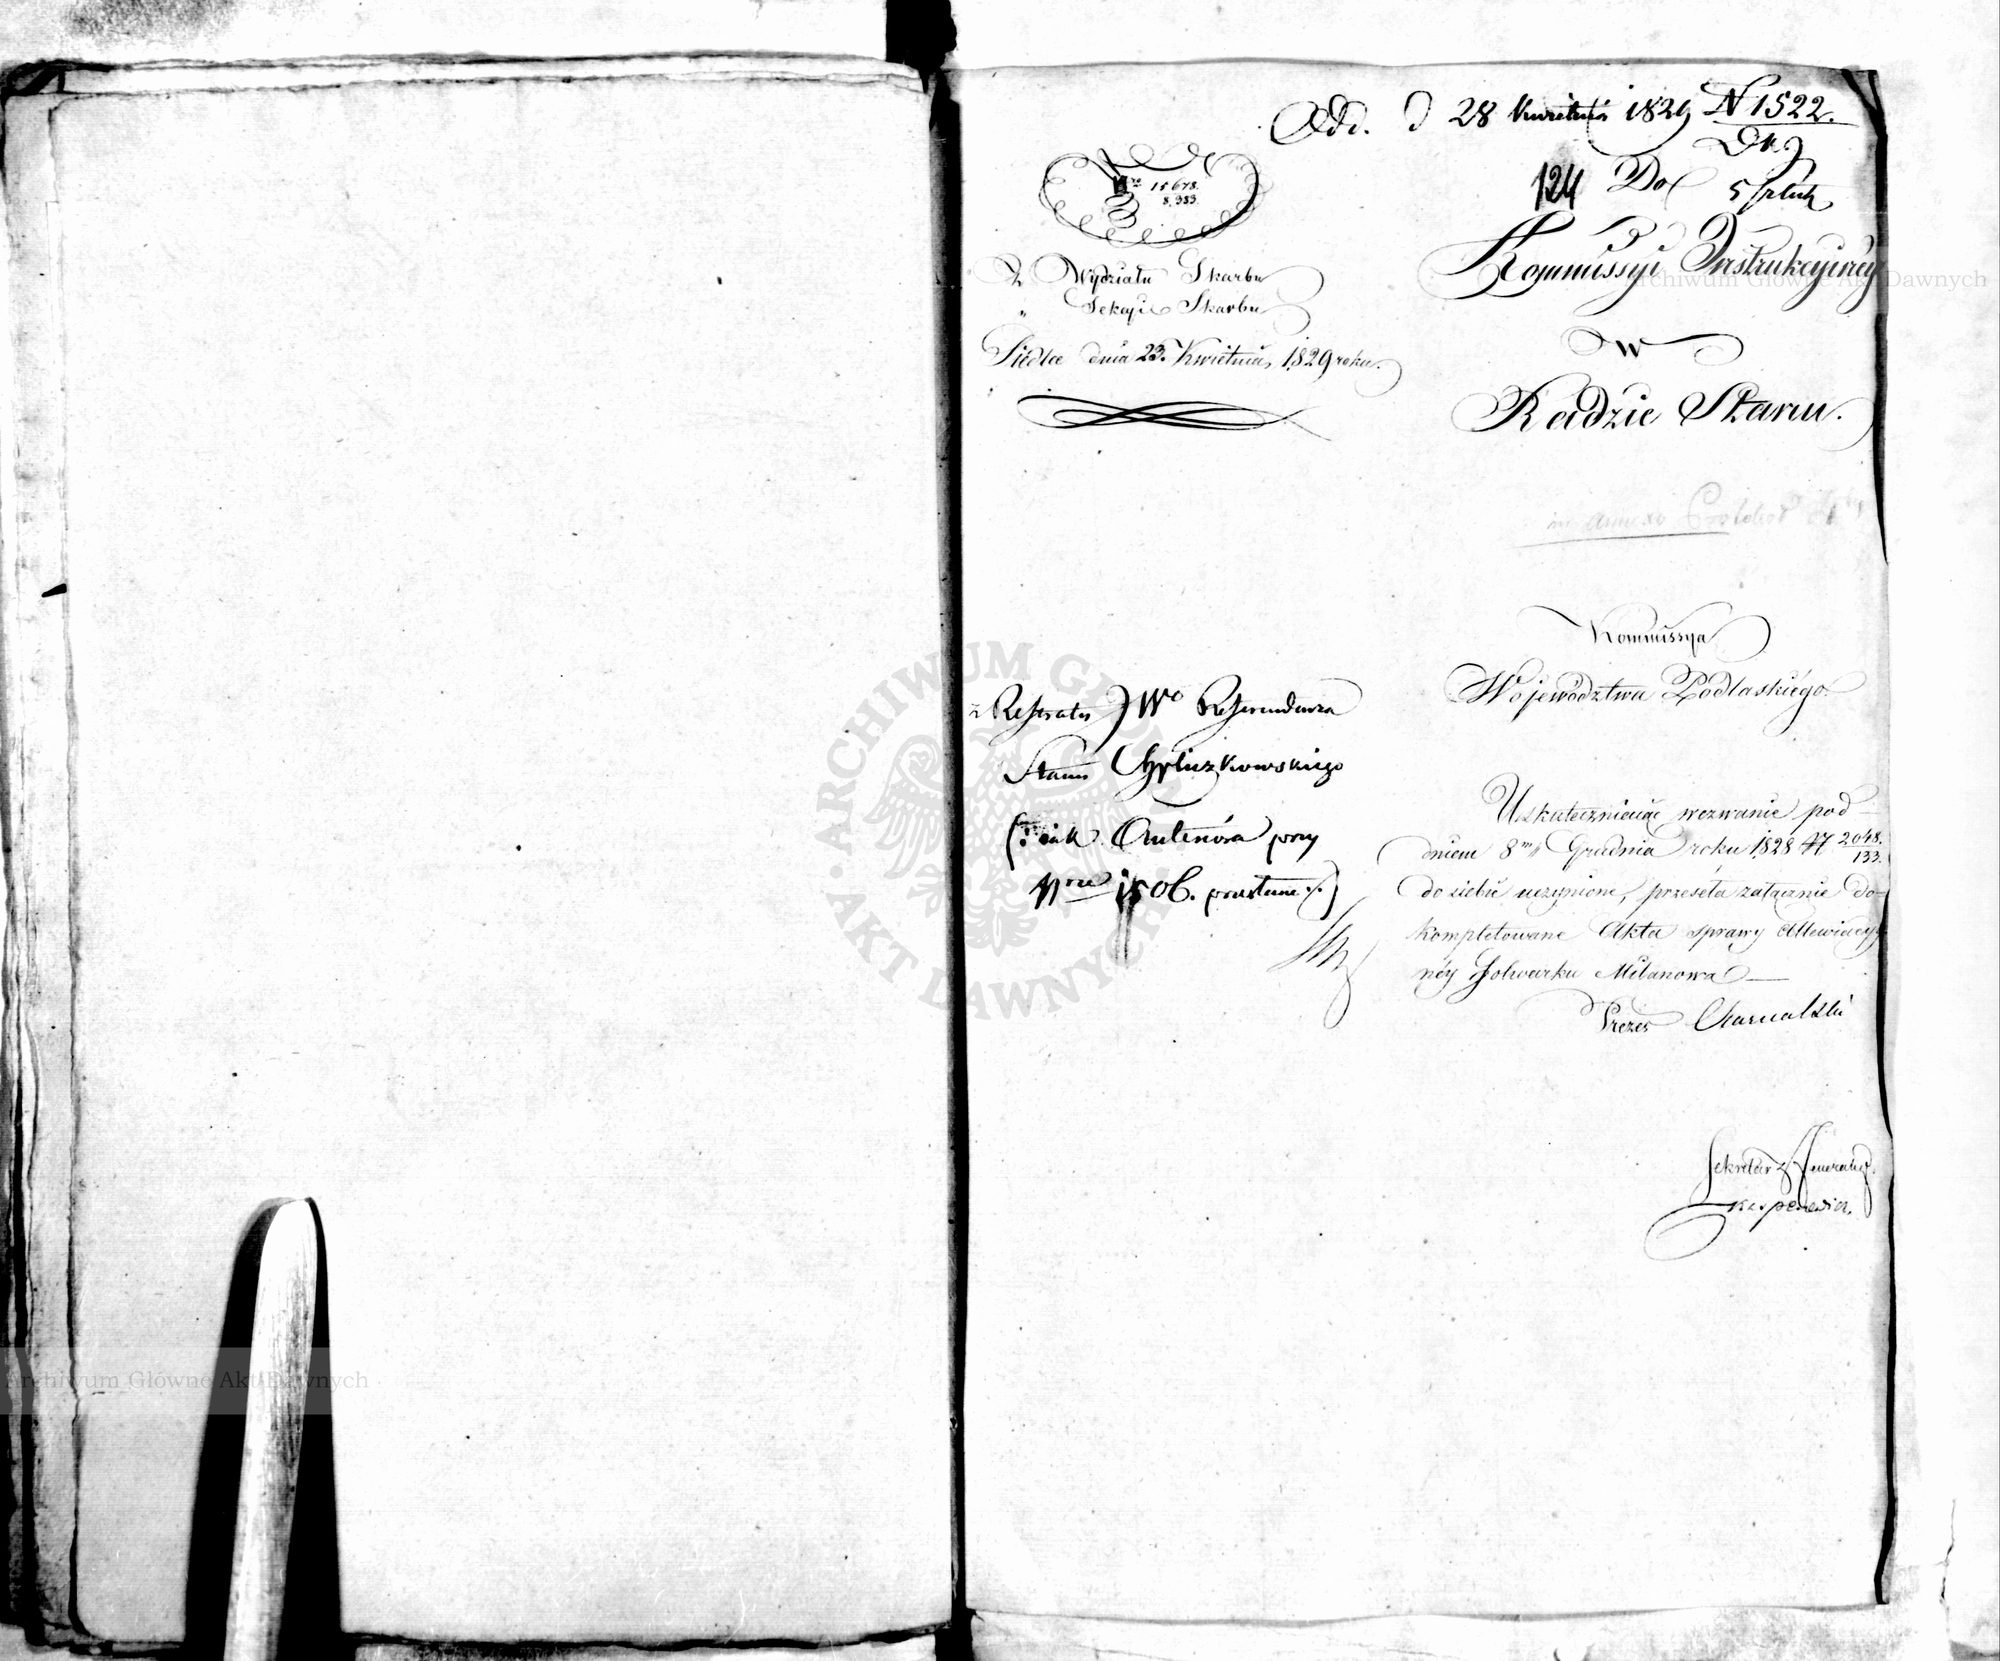 Odd. d 28 Kwietnia 1829 N 1522.
124 Do
Nro 15678.
8,383.
Z Wydziału Skarbu
" Sekcyi Skarbu
Siedlce dnia 23. Kwietnia 1829 roku.
Kommissyi Instrukcyiney
w
Radzie Stanu.
in annexo
Kommissya
Województwa Podlaskiégo.
z Referatu JWo Referendarza
Stanu
(: jak przy
Nrze 1506. :)
Uskuteczniaiąc wezwanie pod
dniem 8m Grudnia roku 1828 N 2048.
133.
do siebie uczynione, przeséła załącznie do-
kompletowane Akta sprawy Allewiacyi-
néy Folwarku Milanowa
Prezes
Sekretarz Jeneralny
Archiwum Główne Akt Dawnych
Archiwum Główne Akt Dawnych
ARCHIWUM GŁÓWNE AKT DAWNYCH